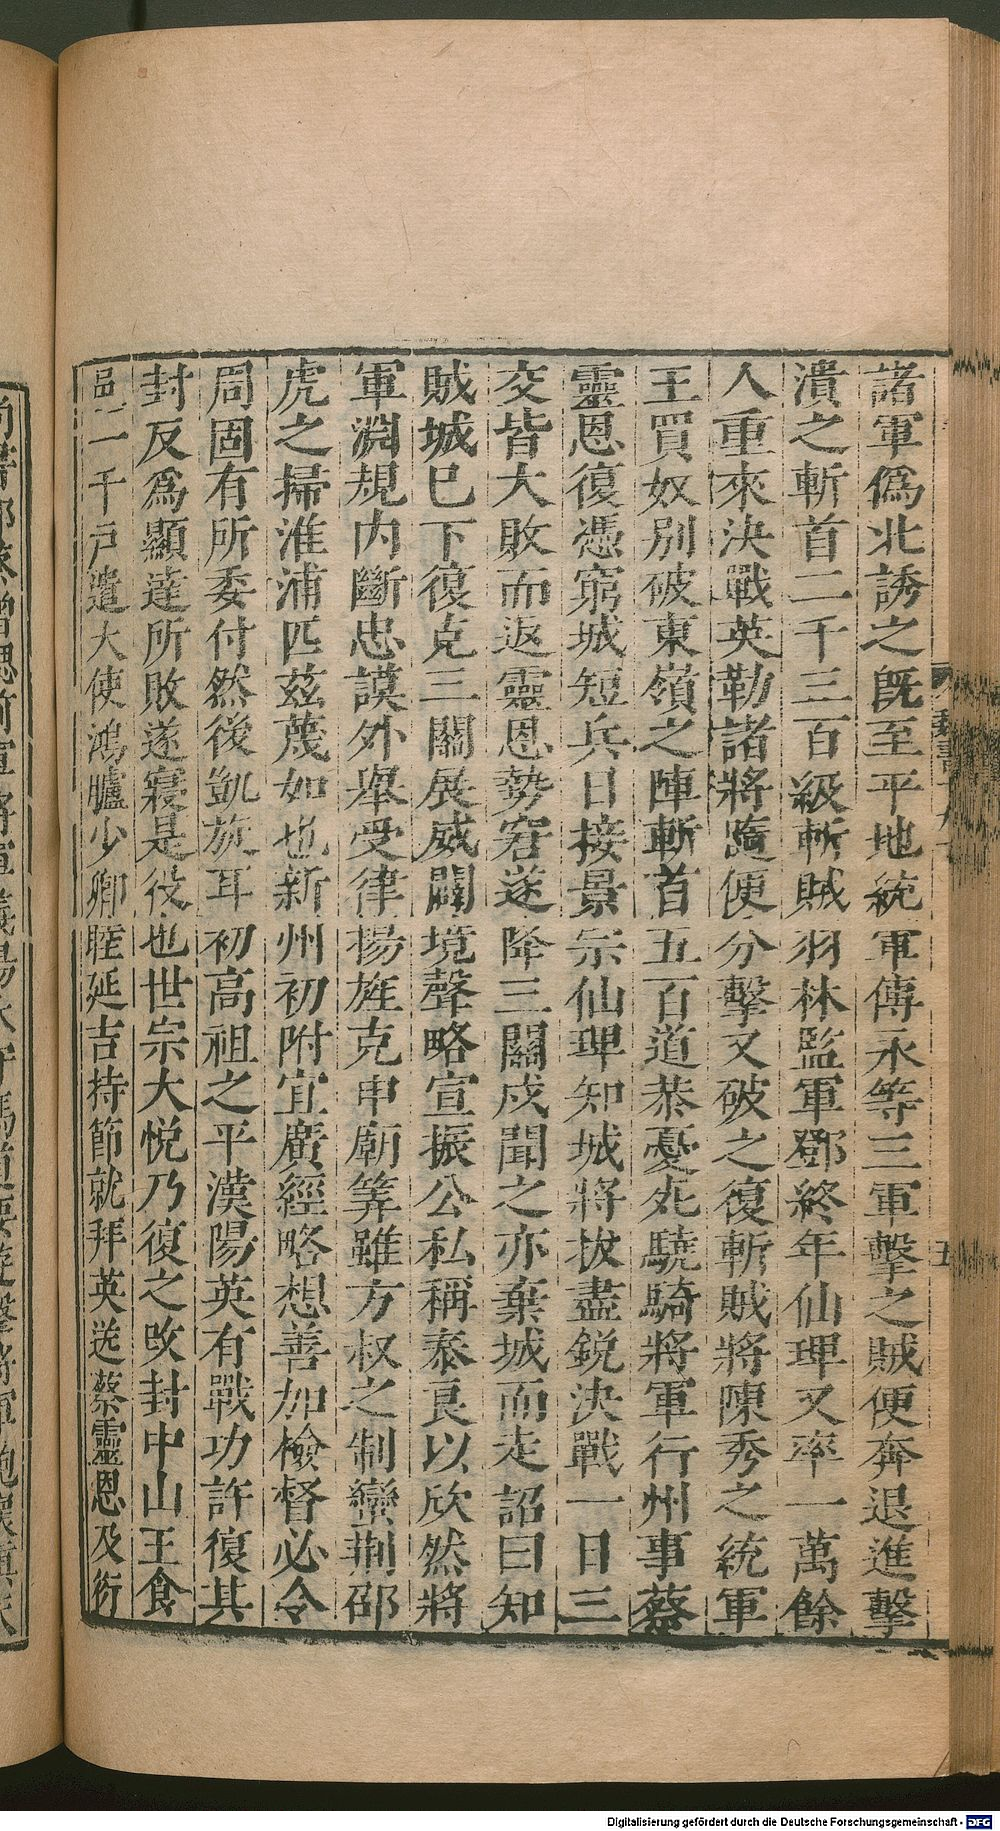 諸軍僞北誘之旣至平地統軍傅永等三軍擊之賊便奔退進擊
潰之斬首二千三百級斬賊羽林監軍鄧終年仙琕又率一萬餘
人重來決戰英勒諸將隨便分擊又破之復斬賊將陳秀之統軍
王買奴別破東嶺之陣斬首五百道恭憂死驍騎將軍行州事蔡
靈恩復憑窮城短兵日接景宗仙琕知城將拔盡銳決戰一日三
交皆大敗而返靈恩勢窘遂降三關戍聞之亦棄城而走詔曰知
賊城已下復克三關展威闢境聲略宣振公私稱泰良以欣然將
軍淵規內斷忠謨外舉受律揚旌克申廟筭雖方叔之制蠻荆邵
虎之掃淮浦匹茲蔑如也新州初附宜廣經略想善加檢督必令
周固有所委付然後凱旋耳初高祖之平漢陽英有戰功許復其
封反爲顯達所敗遂寢是役也世宗大悅乃復之改封中山王食
邑一千戶遣大使鴻臚少卿睦延吉持節就拜英送蔡靈恩及衍
Digitalisierung gefördert durch die Deutsche Forschungsgemeinschaft - DFG